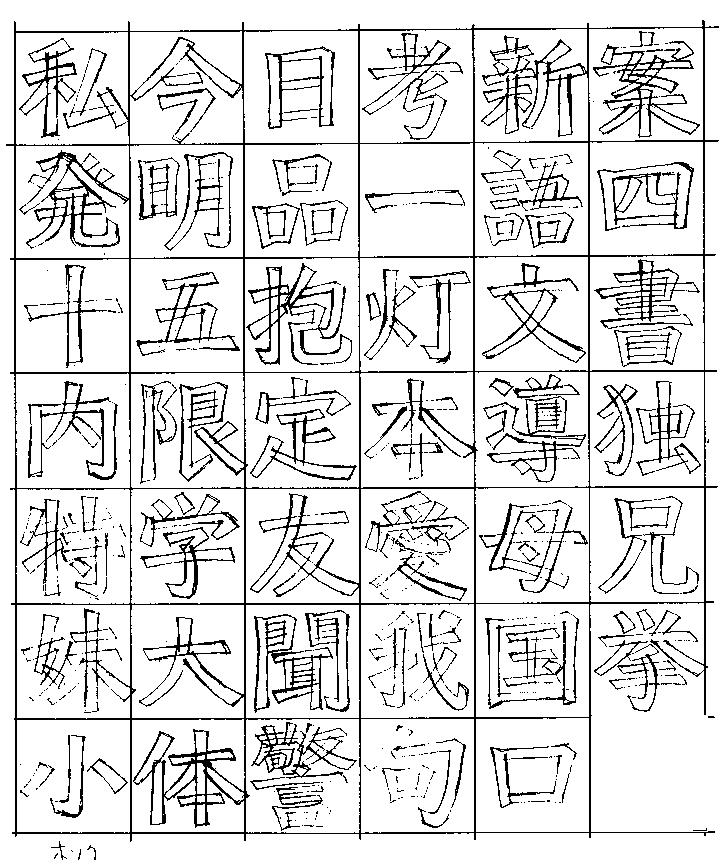 私今日考新案
発明品一語四
十五抱灯文書
内限定本導独
特学友愛母兄
妹大聞我国挙
小体警句口
ホソク